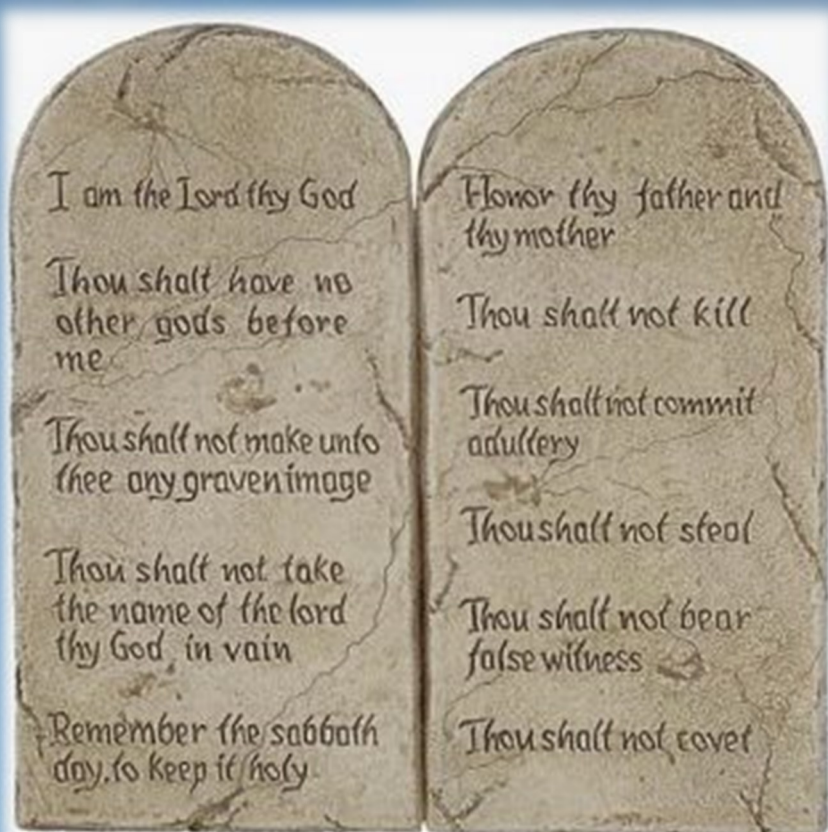 I am the Lord thy God
Thou shalt have no
other gods before
me
Thou shalt not make unto
thee any graven image
Thou shalt not take
the name of the lord
thy God, in vain
Remember the sabbath
day, to keep it holy
Honor thy father and
thy mother
Thou shalt not kill
Thou shalt not commit
adultery
Thou shalt not steal
Thou shalt not bear
false witness
Thou shalt not covet